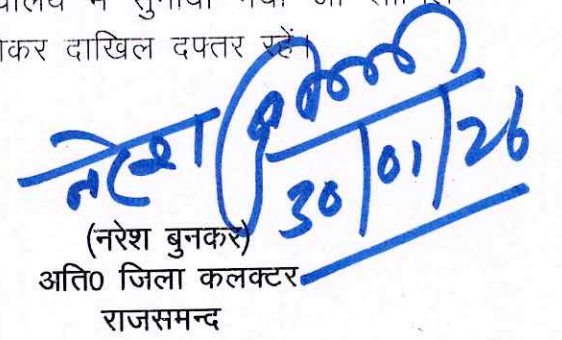 में सुनाया गया जो
दाखिल दफ्तर रहें।
नरेश
30/01/26
(नरेश बुनकर)
अति0 जिला कलक्टर
राजसमन्द